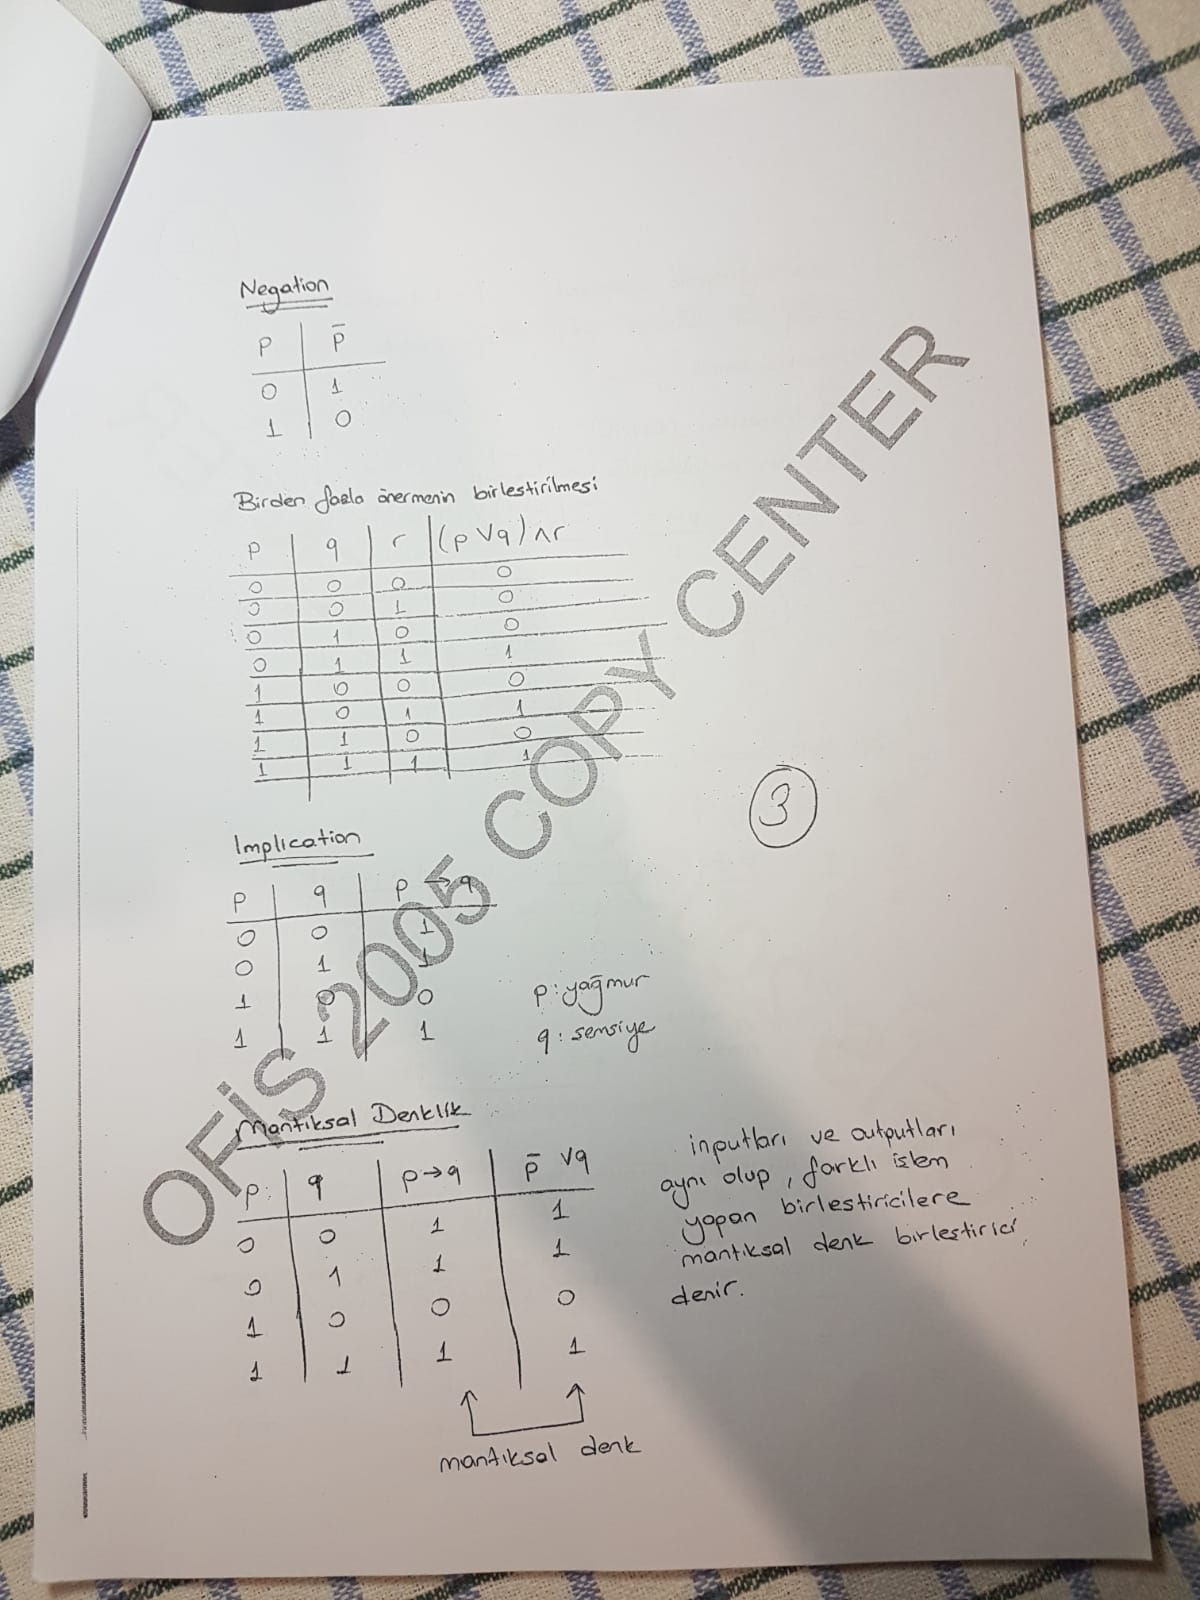 Negation
p | p̄
0 | 1
1 | 0
Birden fazla önermenin birlestirilmesi
p | q | r | (p V q) ∧ r
0 | 0 | 0 | 0
0 | 0 | 1 | 0
0 | 1 | 0 | 0
0 | 1 | 1 | 1
1 | 0 | 0 | 0
1 | 0 | 1 | 1
1 | 1 | 0 | 0
1 | 1 | 1 | 1
3
Implication
p | q | p → q
0 | 0 | 1
0 | 1 | 1
1 | 0 | 0
1 | 1 | 1
p : yağmur
q : semsiye
Mantıksal Denklik
p | q | p → q | p̄ V q
0 | 0 | 1 | 1
0 | 1 | 1 | 1
1 | 0 | 0 | 0
1 | 1 | 1 | 1
mantıksal denk
inputları ve outputları
aynı olup, farklı islem
yapan birlestiricilere
mantıksal denk birleştirici
denir.
OFİS 2005 COPY CENTER